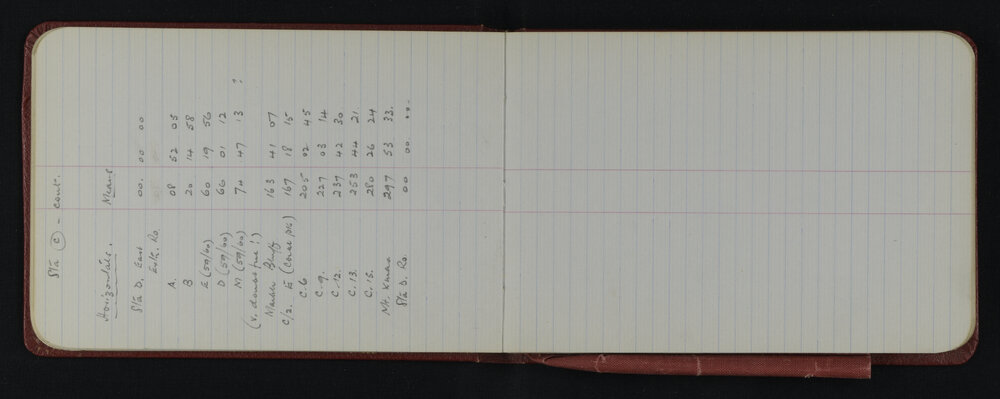 Sta (C) - cont.
Horizontals. Means
Sta D. East 00. 00 00
Extr. Ro.
A. 08 52 05
B 20 14 58
E (59/60) 60 19 56
D (59/60) 66 01 12
M (59/60) 74 47 13 ?
(v. doubtful !)
Marsh Bluff 163 41 07
C/2. E (Corner pk) 167 18 15
C. 6 205 02 45
C. 9. 227 03 14
C. 12. 237 42 30
C. 13. 253 44 21.
C. 15. 280 26 24
Mt. 297 53 33.
Sta D. Ro. 00 00. ..